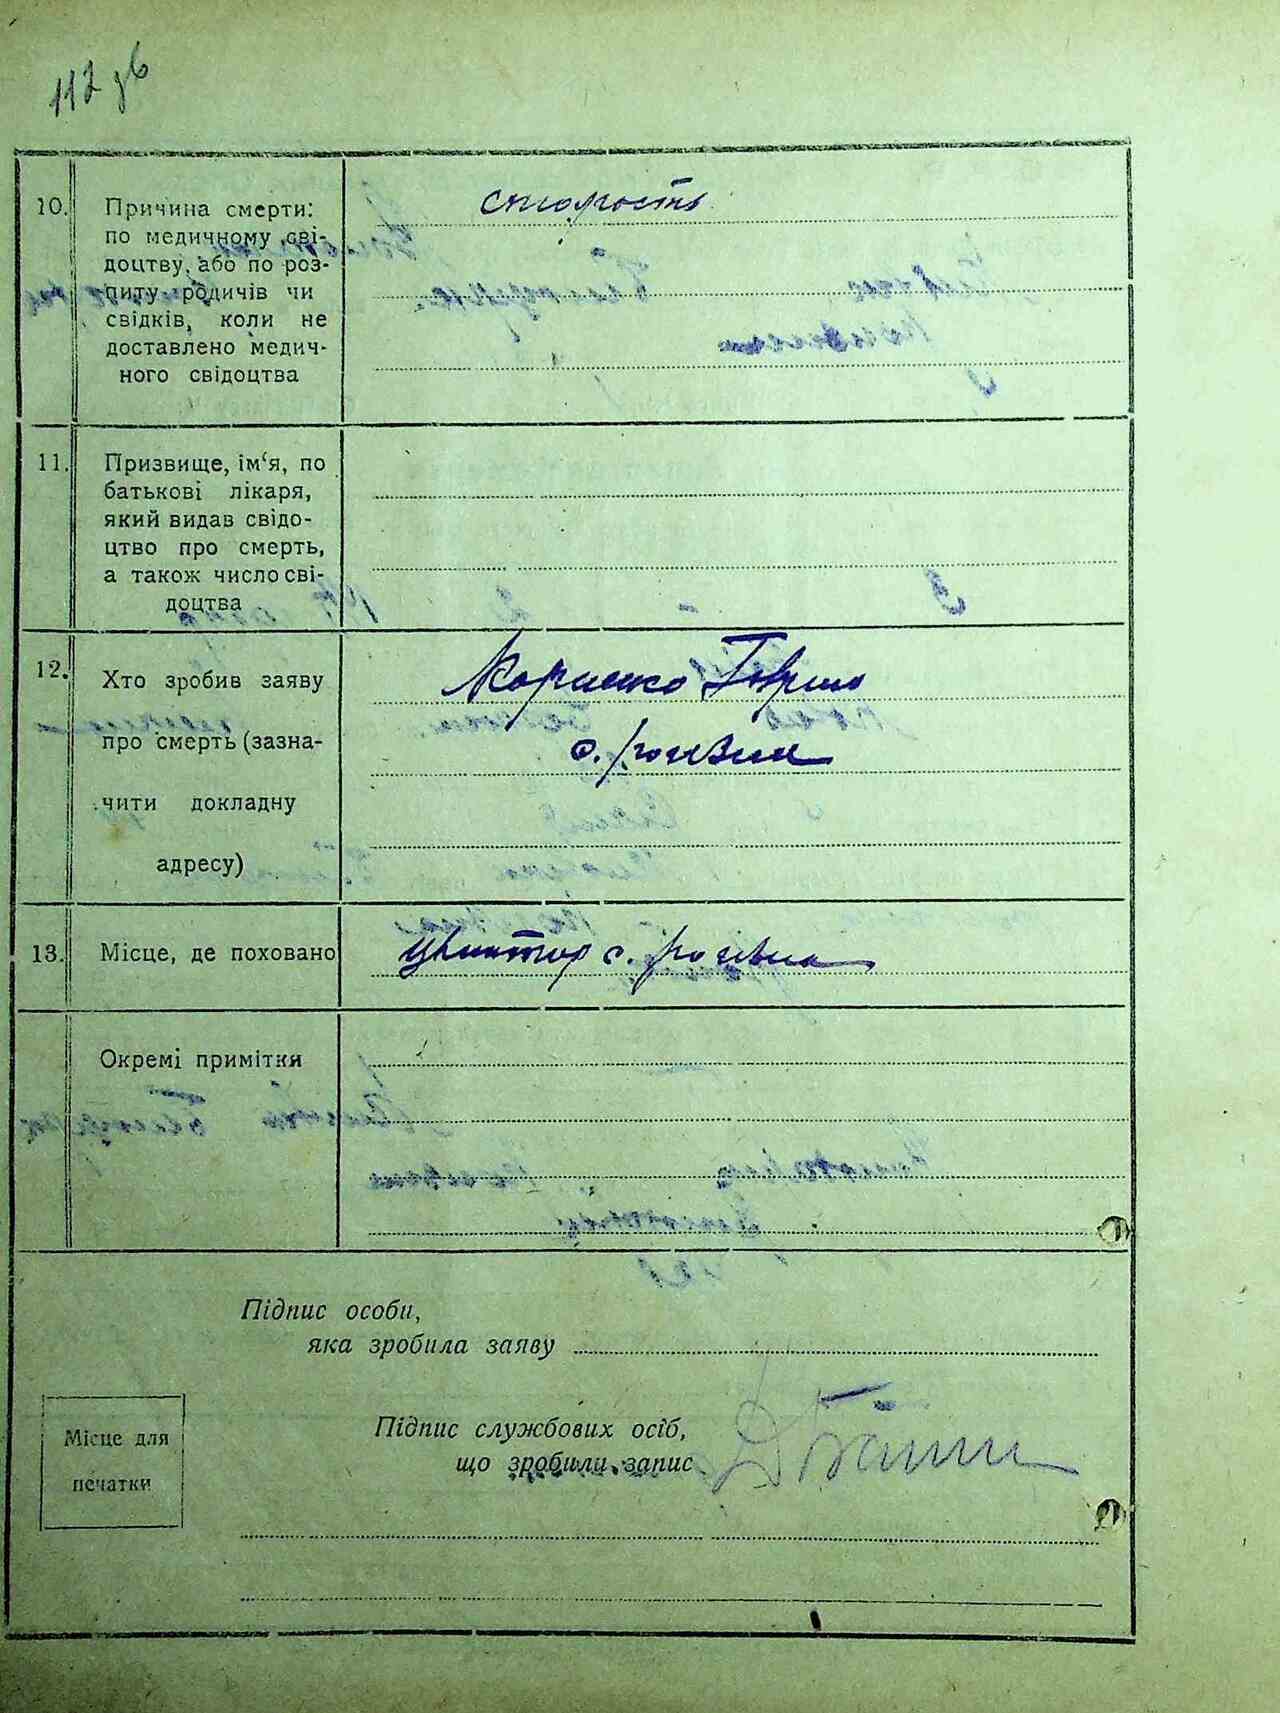 112 зв
10. Причина смерти:
по медичному сві-
доцтву, або по роз-
питу родичів чи
свідків, коли не
доставлено медич-
ного свідоцтва
старость
11. Призвище, ім‘я, по
батькові лікаря,
який видав свідо-
цтво про смерть,
а також число сві-
доцтва
12. Хто зробив заяву
про смерть (зазна-
чити докладну
адресу)
с.
13. Місце, де поховано
цвинтар с.
Окремі примітки
Підпис особи,
яка зробила заяву
Місце для
печатки
Підпис службових осіб,
що зробили запис